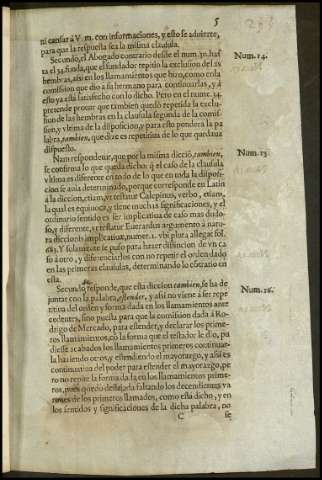 5
ni cansar à V. m. con informaciones, y esto se aduierte,
para que la respuesta sea la misma clausula.
Secundo, el Abogado contrario desde el num. 30. hasta
el 34. funda, que el fundador repitio la exclusion de las
hembras, assi en los llamamientos que hizo, como en la
comission que dio a su hermano para continuarlos, y à
esto ya està satisfecho con lo dicho. Pero en el num. 34.
pretende prouar que tambien quedò repetida la exclu-
sion de las hembras en la clausula segunda de la comis-
sion, y vltima de la disposicion, y para esto pondera la pa
labra, tambien, que dize es repetitiua de lo que quedaua
dispuesto.
Num. 14.
Nam respondetur, que por la misma dicciô, tambien,
se confirma lo que queda dicho: q̃ el caso de la clausula
vltima es diferente en todo de lo que en toda la disposi-
cion se auia determinado, porque corresponde en Latin
à la diccion, etiam, vt testatur Calepinus, verbo, etiam,
la qual es equiuoca, y tiene muchas significaciones, y el
ordinario sentido es ser implicatiua de caso mas dudo-
so, y diferente, vt testatur Euerardus argumento à natu-
ra diccionis implicatiuæ, numer. 1. vbi plura allegat fol.
Y solamente se puso para hazer distincion de vn ca
so à otro, y diferenciarlos con no repetir el orden dado
en las primeras clausulas, determinando lo contrario en
esta.
Num. 15.
Secundo, responde, que esta diccion tambien, se ha de
juntar con la palabra, estender, y assi no viene à ser repe
titiua del orden y forma dada en los llamamientos ante
cedentes, sino puesta para que la comission dada à Ro-
drigo de Mercado, para estender, y declarar los prime-
ros llamamientos, cō la forma que el testador le dio, pu
diesse acabados los llamamientos primeros continuar-
la haziendo otros, y estendiendo el mayorazgo, y assi es
continuatiua del poder para estender el mayorazgo, pe
ro no repite la forma dada en los llamamientos prime-
ros, pues quedò dexada faltando los decendientes va
rones de los primeros llamados, como està dicho, y en
los sentidos y significaciones de la dicha palabra, no
Num. 16.
C se